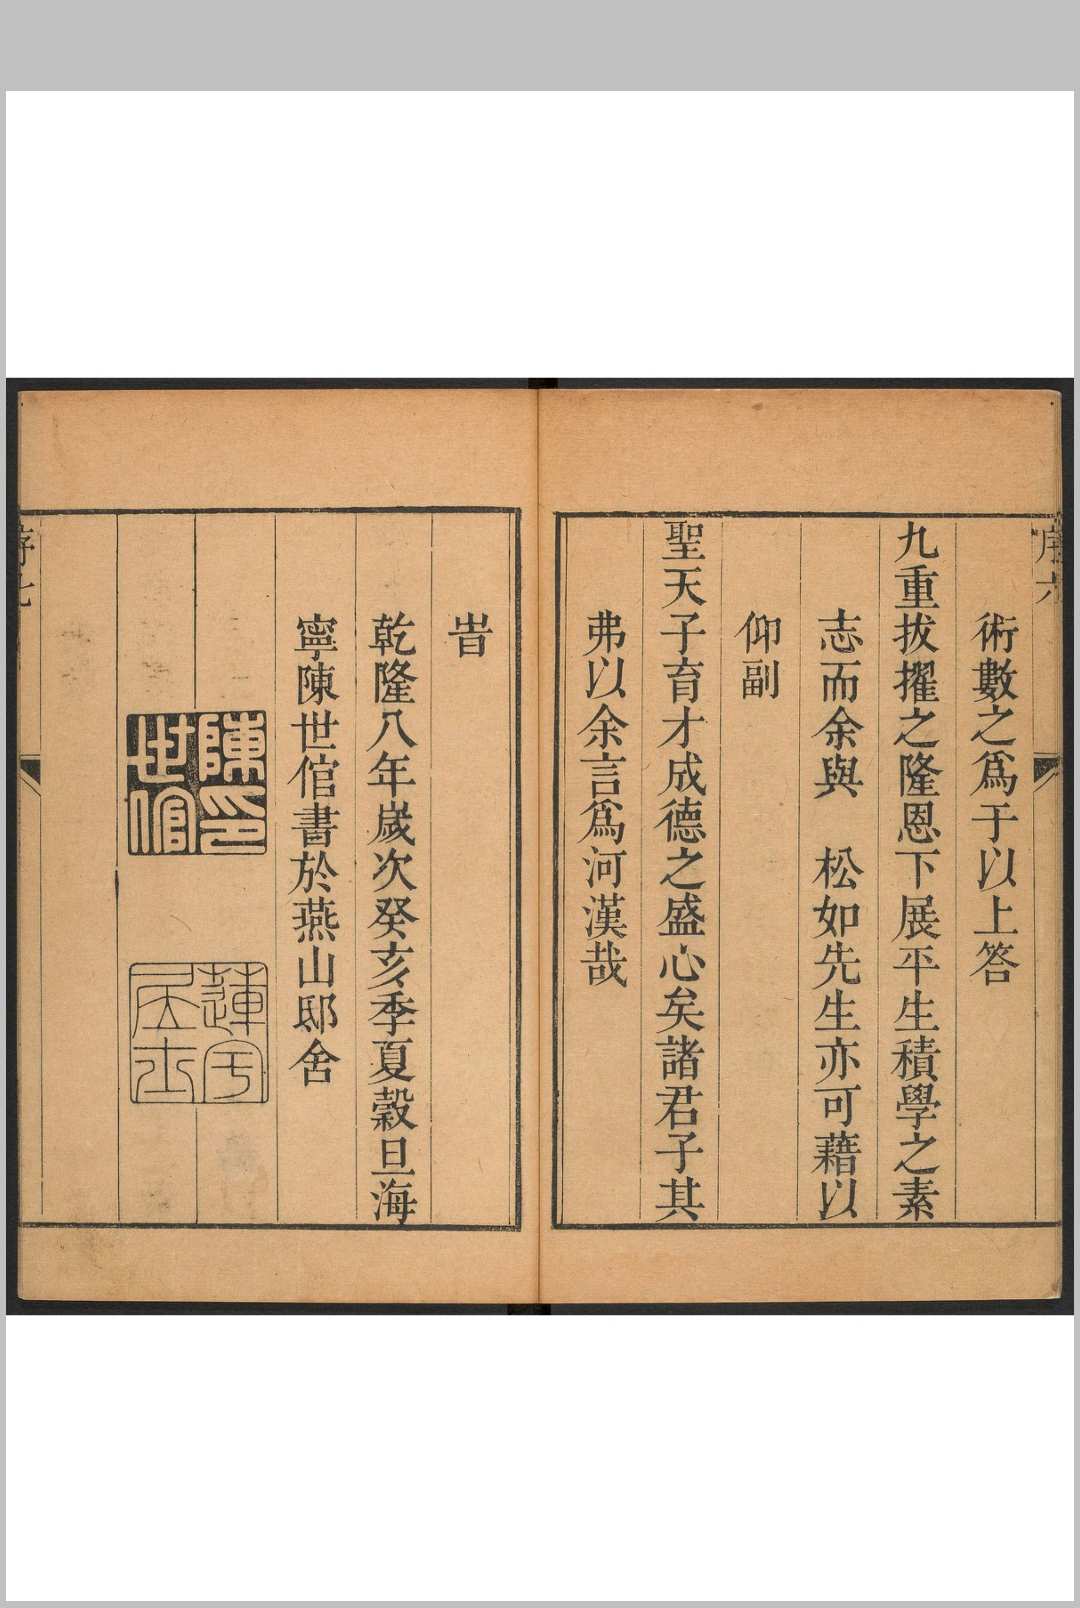 序六
術數之爲于以上答
九重拔擢之隆恩下展平生積學之素
志而余與 松如先生亦可藉以
仰副
聖天子育才成德之盛心矣諸君子其
弗以余言爲河漢哉
旹
乾隆八年歲次癸亥季夏穀旦海
寧陳世倌書於燕山邸舍
陳印
世倌
蓮宇
居士
序七